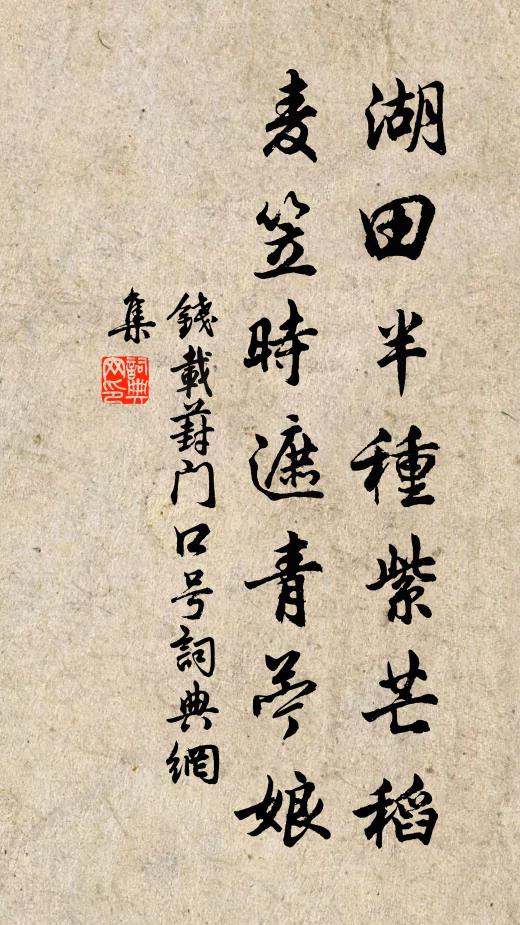 湖田半種紫芒稻
麦笠時遮青苧娘
錢載葑门口号詞典網
集
詞典網印